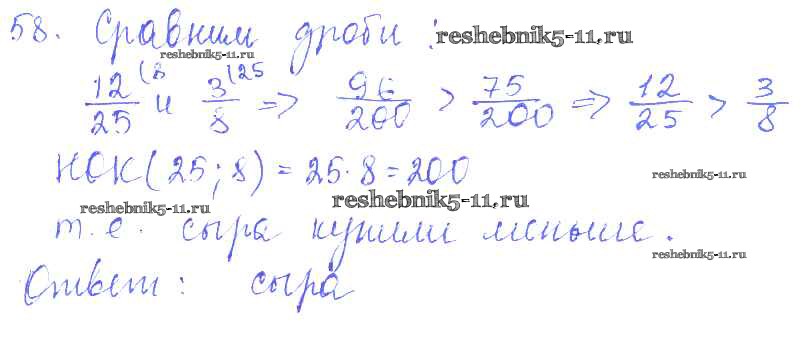 58. Сравним дроби: reshebnik5-11.ru
reshebnik5-11.ru
12/25 (8 и 3/8 (25 => 96/200 > 75/200 => 12/25 > 3/8
НОК(25; 8) = 25·8 = 200 reshebnik5-11.ru
reshebnik5-11.ru reshebnik5-11.ru
т.е. сыра купили меньше.
reshebnik5-11.ru
Ответ: сыра